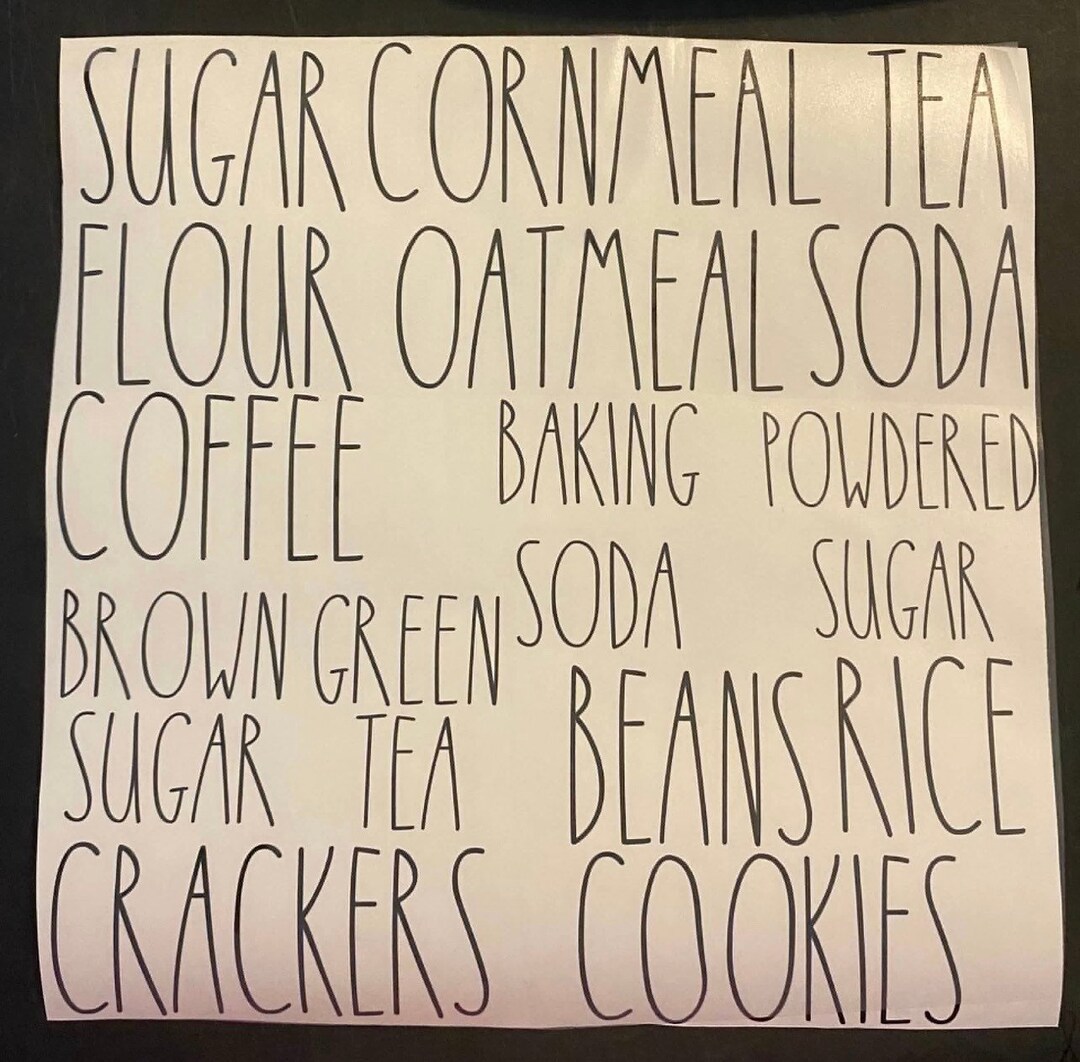 SUGAR CORNMEAL TEA
FLOUR OATMEAL SODA
COFFEE BAKING POWDERED
SODA SUGAR
BROWN GREEN
SUGAR TEA BEANS RICE
CRACKERS COOKIES